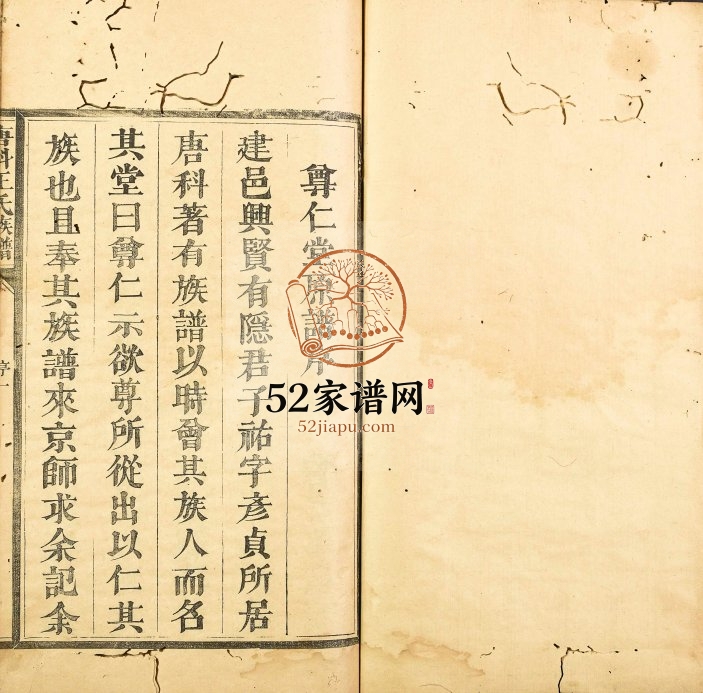 尊仁堂原譜序
建邑興賢有隱君子祐字彥貞所居
唐科著有族譜以時會其族人而名
其堂曰尊仁示欲尊所從出以仁其
族也且奉其族譜來京師求余記余
唐科王氏族譜
序一
52家谱网
52jiapu.com